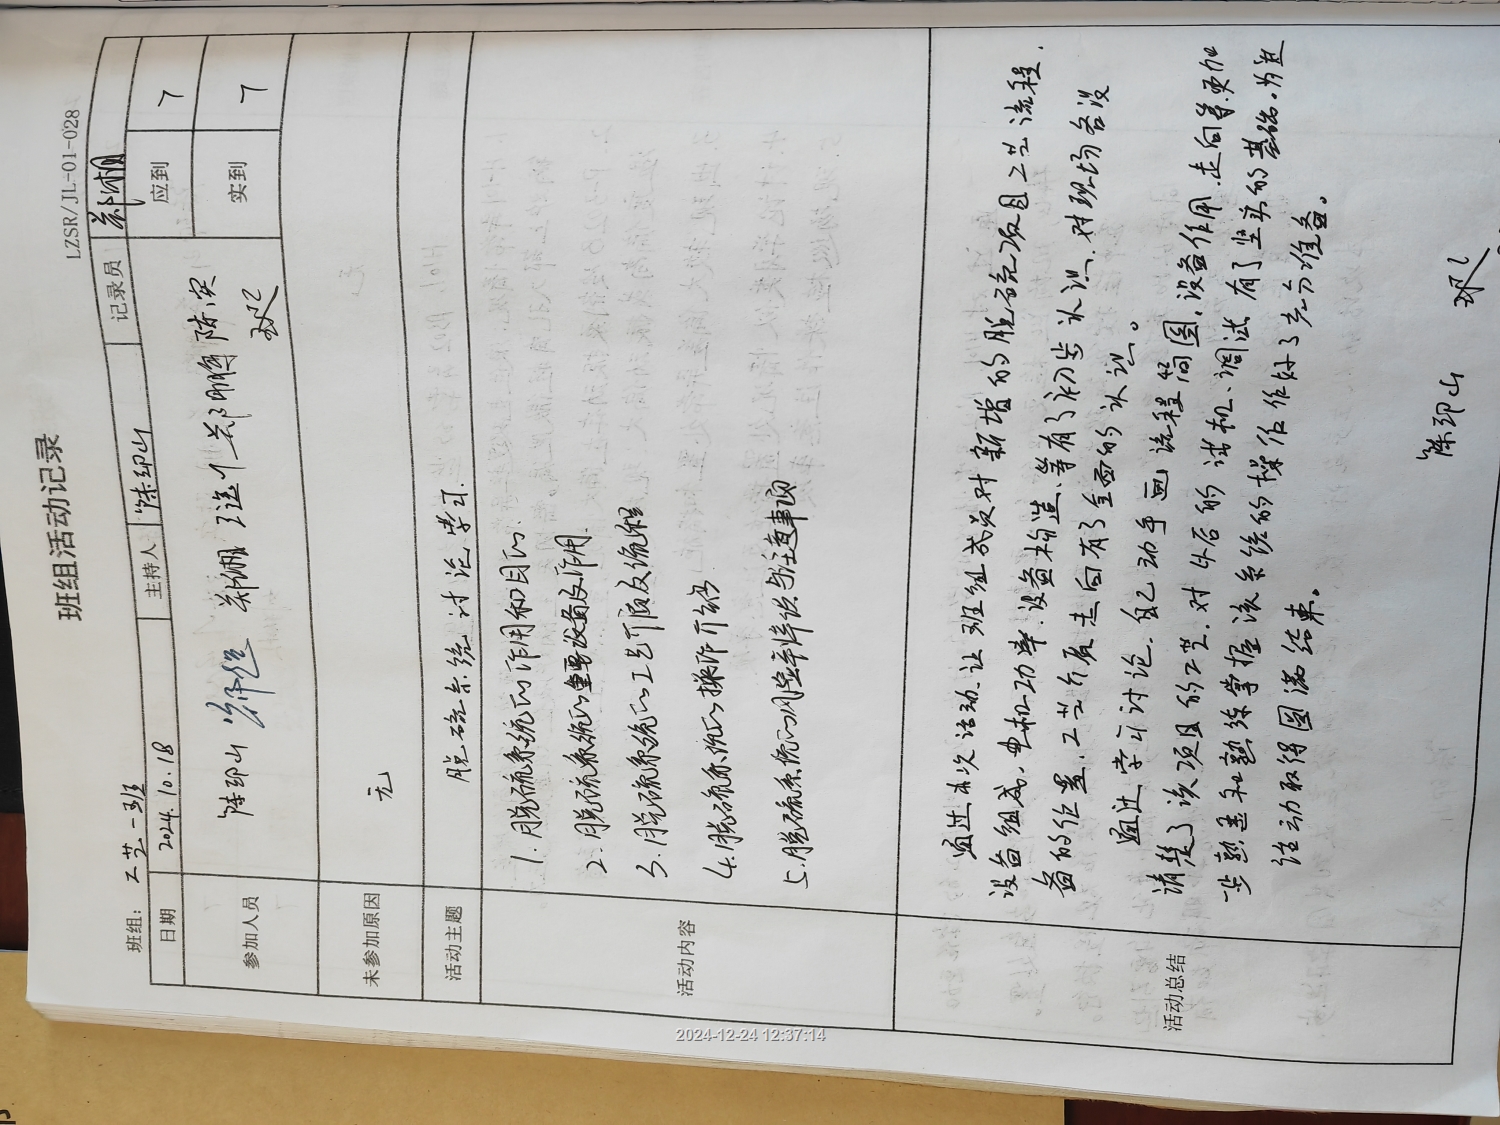 LZSR/JL-01-028
班组活动记录
班组： 工艺一班
日期 2024.10.18 主持人 陈印山 记录员 郑湘
参加人员 陈印山 郑湘 郑鹏 陈实
应到 7
实到 7
未参加原因 无
活动主题 脱硫系统讨论学习.
活动内容
1. 脱硫系统的作用和目的.
2. 脱硫系统的重要设备及作用.
3. 脱硫系统的工艺介质及流程
4. 脱硫系统的操作介绍
5. 脱硫系统的风险辨识与注意事项
活动总结
通过本次活动.让班组成员对新增的脱硫项目工艺流程.
设备组成、电机功率.设备构造、等有了初步认识.对现场各设
备的位置.工艺介质走向有了全面的认识。
通过学习讨论.自己动手画流程简图,设备作用.走向等.更加
清楚了该项目的工艺.对今后的试机、调试有了坚实的基础。为进
一步熟悉和熟练掌握该系统的操作作好了充分准备。
活动取得圆满结束。
陈印山
2024-12-24 12:37:14